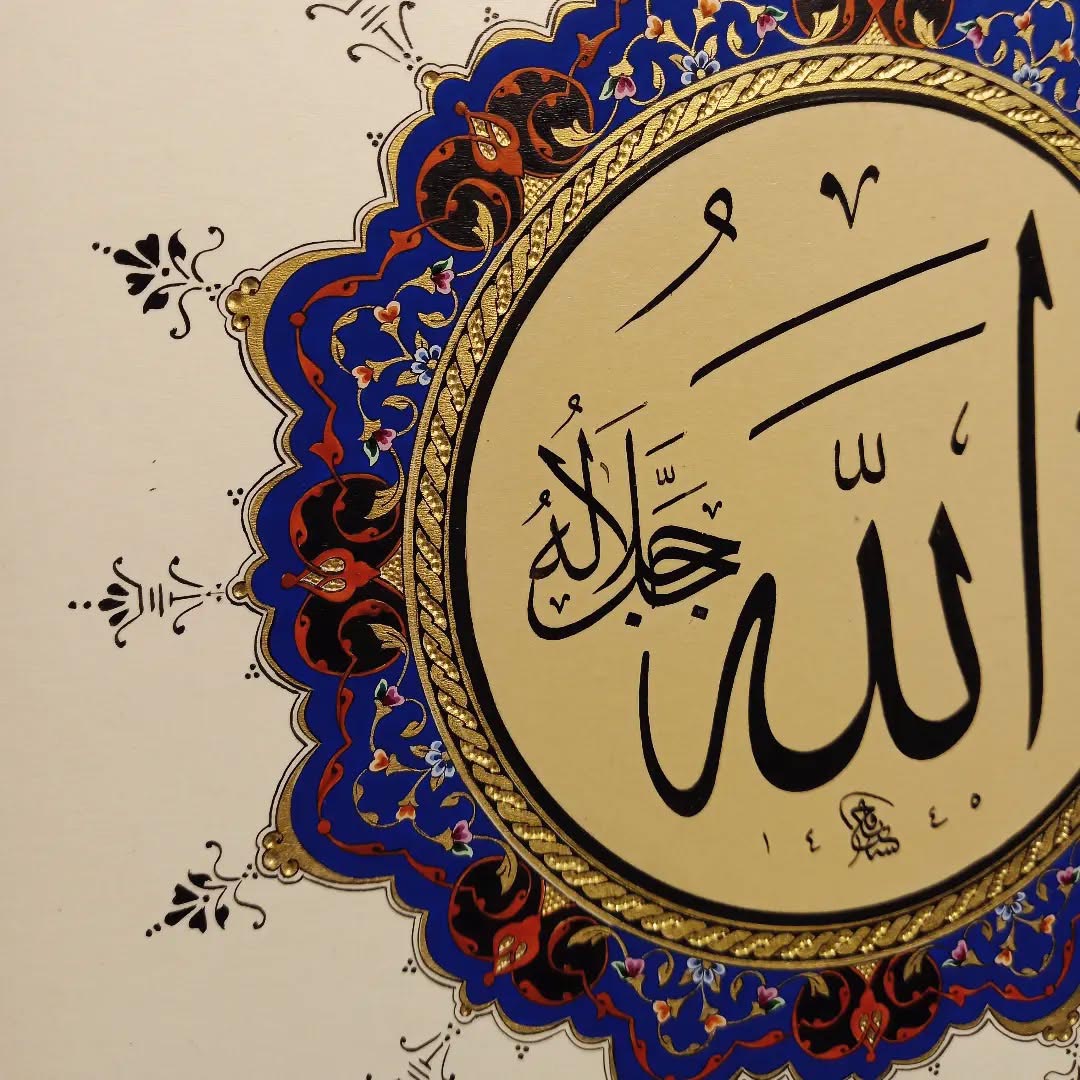 اللّٰهُ
جَلَّ جَلَالُهُ
١٤٤٥